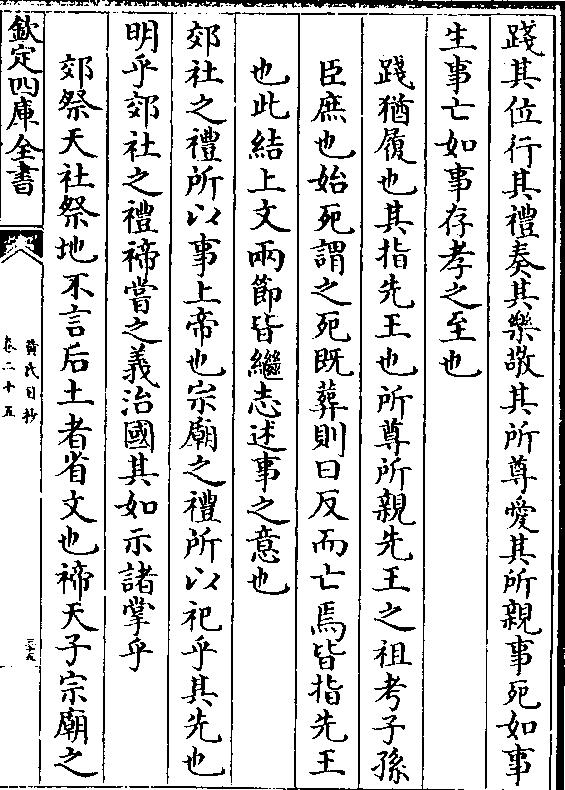 踐其位行其禮奏其樂敬其所尊愛其所親事死如事
生事亡如事存孝之至也
踐猶履也其指先王也所尊所親先王之祖考子孫
臣庶也始死謂之死既葬則曰反而亡焉皆指先王
也此結上文兩節皆繼志述事之意也
郊社之禮所以事上帝也宗廟之禮所以祀乎其先也
明乎郊社之禮禘嘗之義治國其如示諸掌乎
郊祭天社祭地不言后土者省文也禘天子宗廟之
欽定四庫全書
黄氏日抄
卷二十五